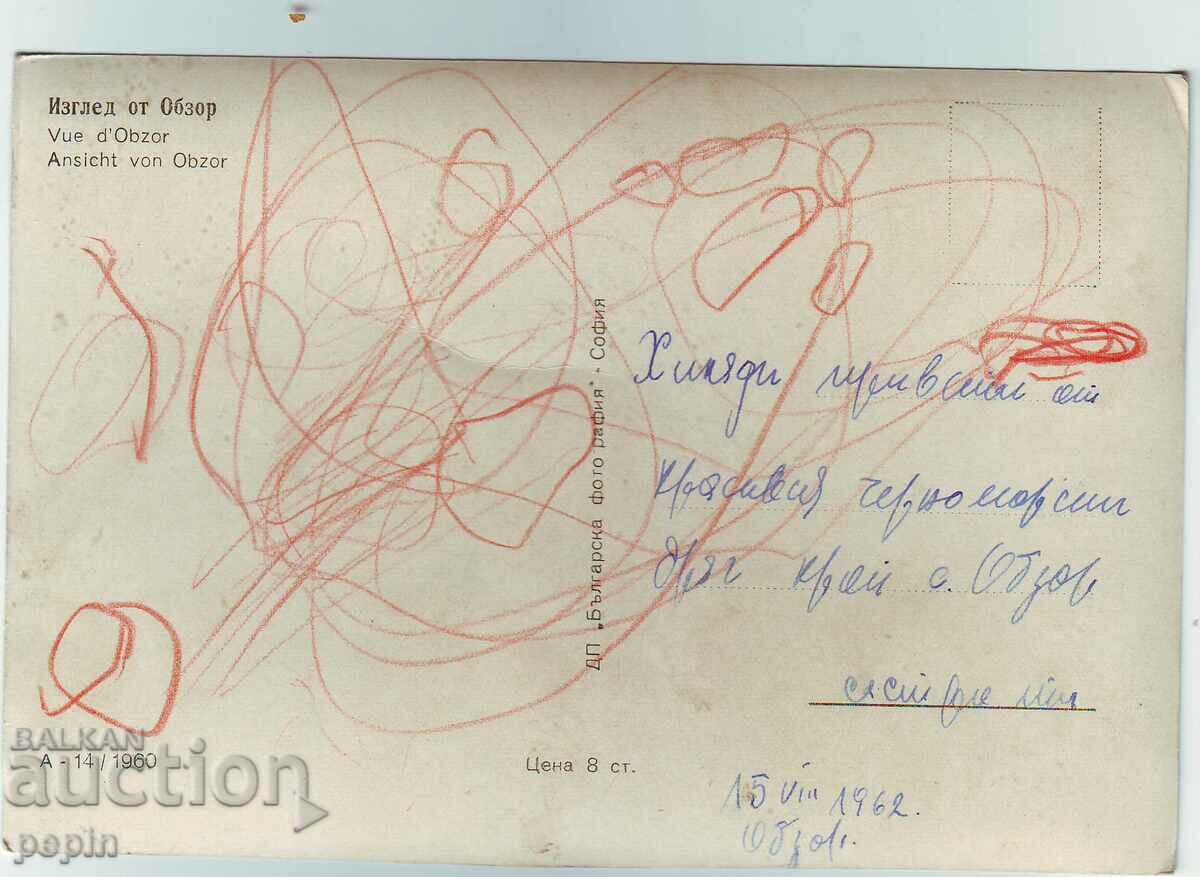 Изглед от Обзор
Vue d'Obzor
Ansicht von Obzor
ДП „Българска фотография" - София
Хиляди приветни от
красивия черноморски
бряг край с. Обзор
15 VIII 1962.
Обзор.
А - 14 / 1960
Цена 8 ст.
BALKAN
auction
pepin